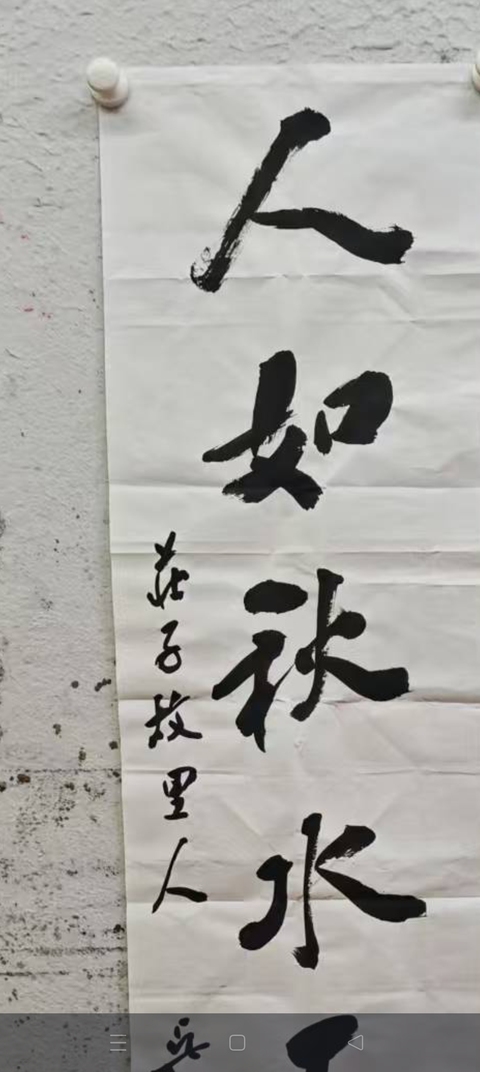 人如秋水
莊子故里人